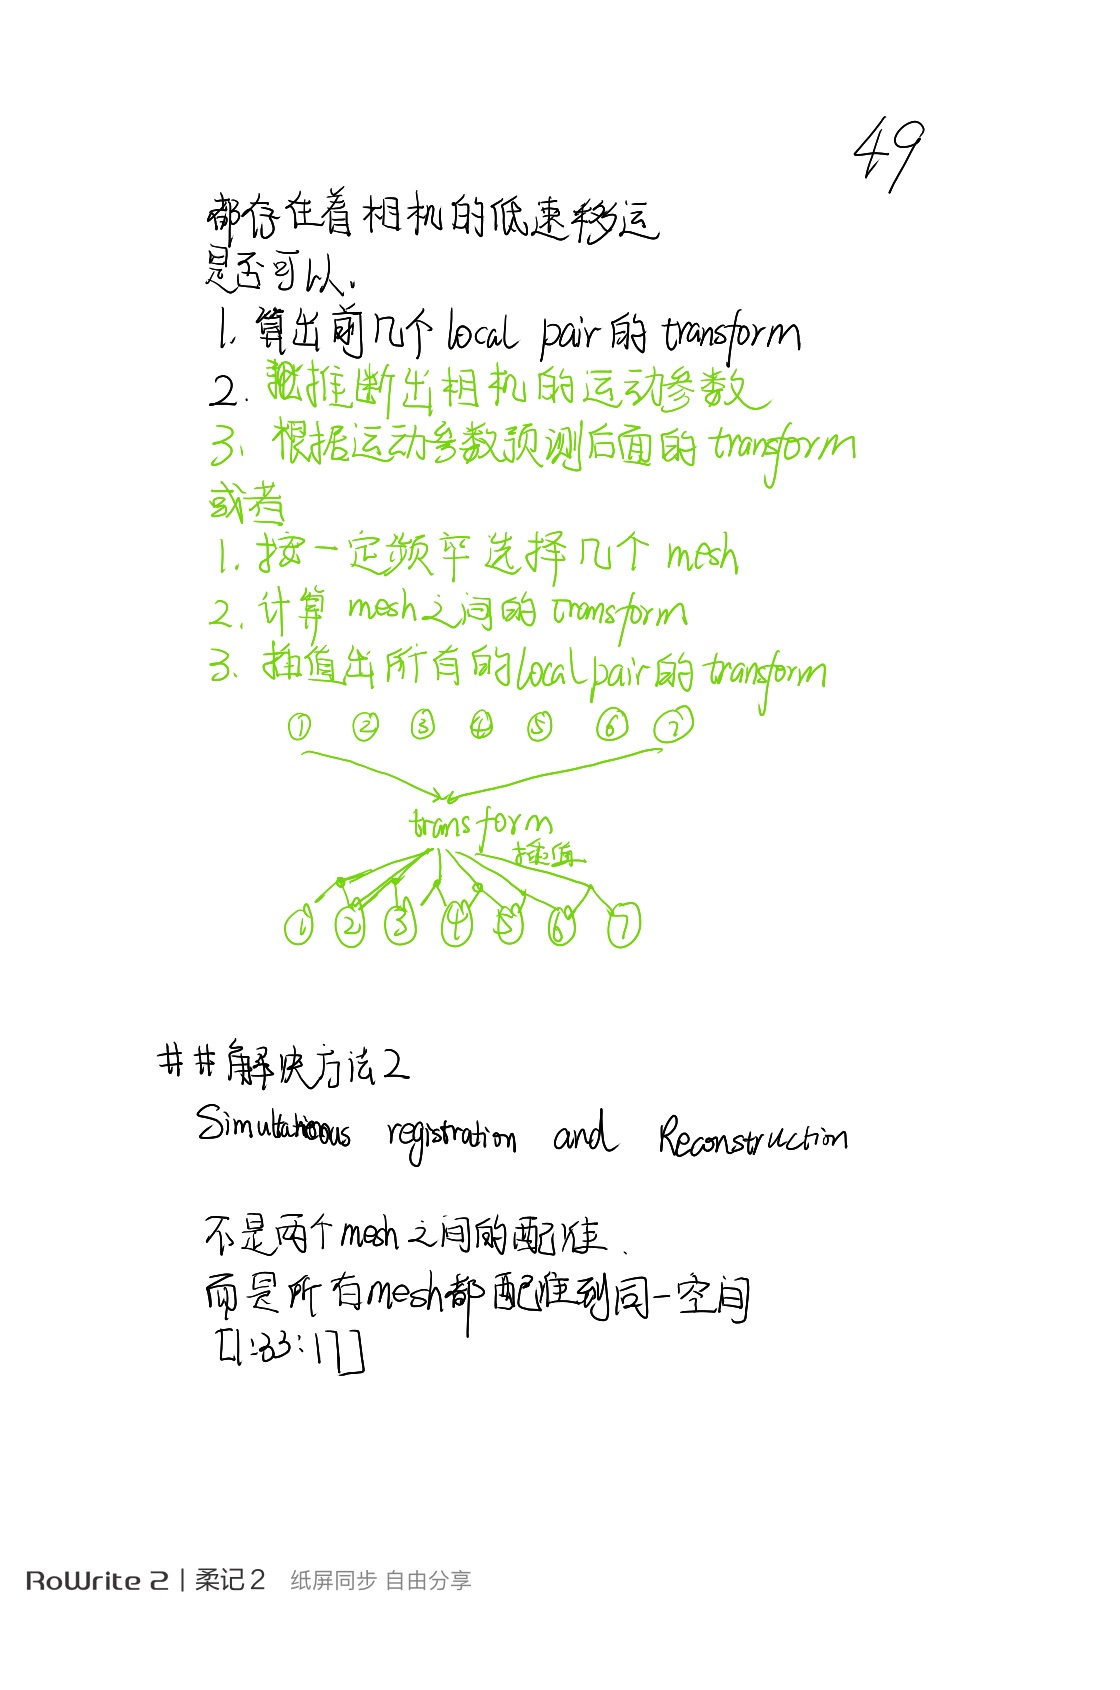 49
都存在着相机的低速移运
是否可以.
1. 算出前几个 local pair 的 transform
2. 推断出相机的运动参数
3. 根据运动参数预测后面的 transform
或者
1. 按一定频率选择几个 mesh
2. 计算 mesh 之间的 transform
3. 插值出所有的 local pair 的 transform
① ② ③ ④ ⑤ ⑥ ⑦
transform
插值
① ② ③ ④ ⑤ ⑥ ⑦
##解决方法2
Simultaneous registration and Reconstruction
不是两个mesh之间的配准.
而是所有mesh都配准到同一空间
[1:33:17]
RoWrite 2 | 柔记 2 纸屏同步 自由分享